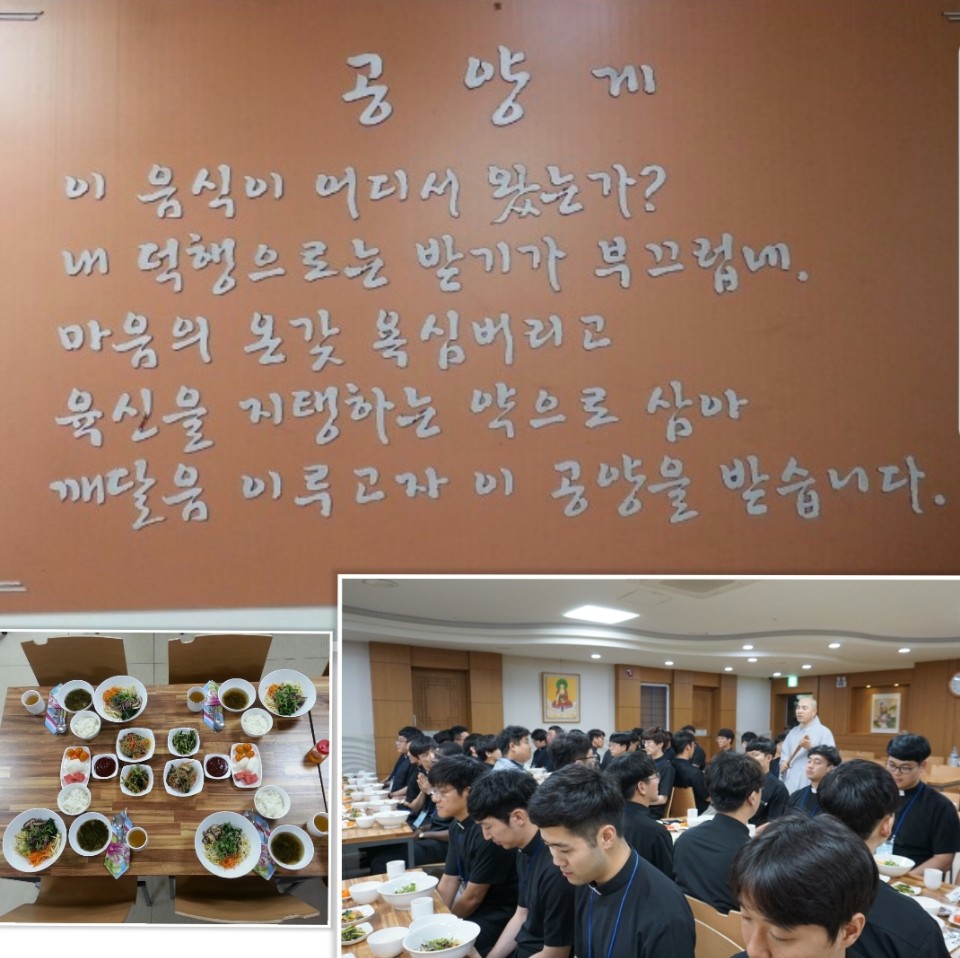 공양게
이 음식이 어디서 왔는가?
내 덕행으로는 받기가 부끄럽네.
마음의 온갖 욕심버리고
육신을 지탱하는 약으로 삼아
깨달음 이루고자 이 공양을 받습니다.